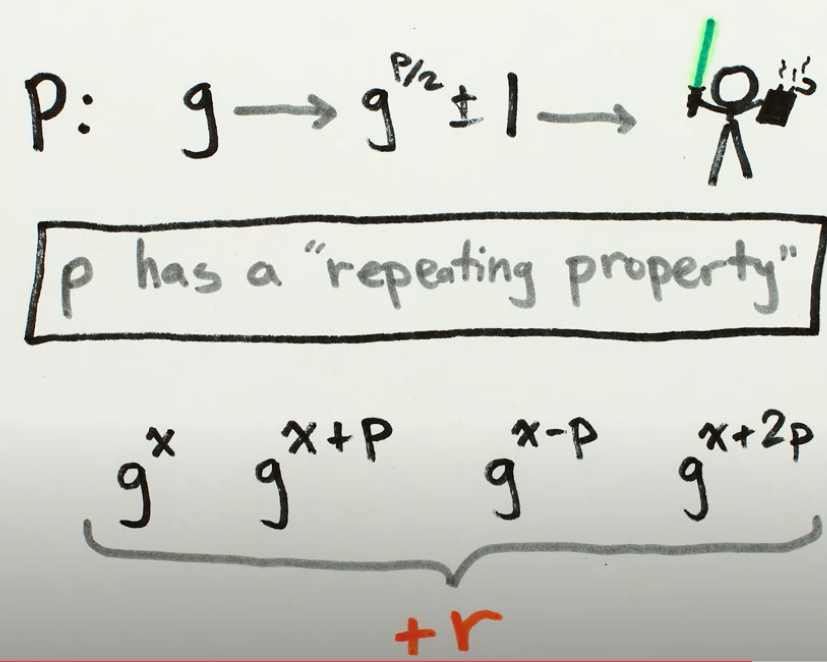 p: g → g^{p/2} ± 1 →
p has a "repeating property"
g^x g^{x+p} g^{x-p} g^{x+2p}
+r